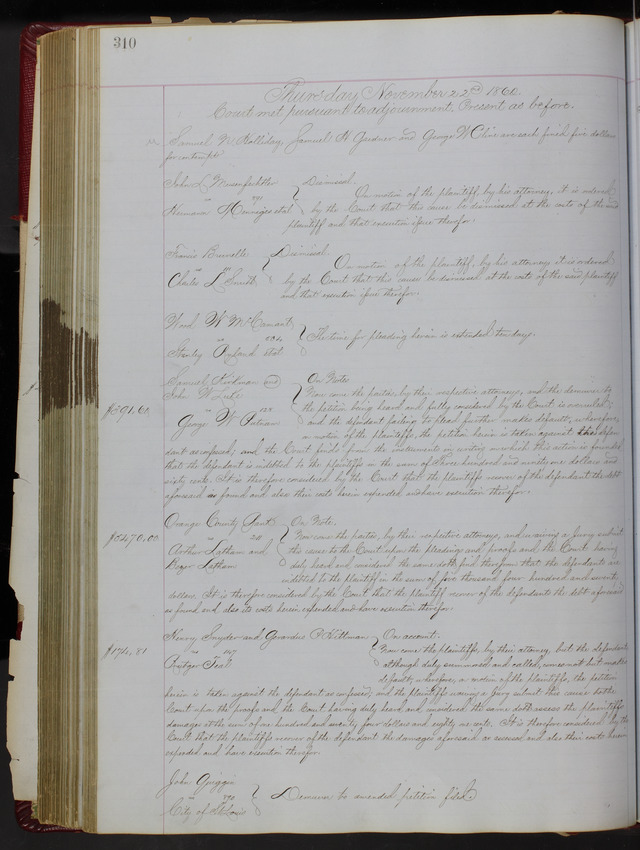 310
Thursday November 22d 1860.
Court met pursuant to adjournment. Present as before.
Samuel N. Holliday, Samuel H. Gardner and George W Cline are each fined five dollars
for contempt
John L
vs
Hermann et al
Dismissal.
On motion of the plaintiff, by his attorney, it is ordered
by the Court that this cause be dismissed at the costs of the said
plaintiff and that execution issue therefor.
Francis Brunelle
vs
Charles L Smith
Dismissal.
On motion of the plaintiff, by his attorney it is ordered
by the Court that this cause be dismissed at the costs of the said plaintiff
and that execution issue therefor.
Wood W
vs
Stanley et al
The time for pleading herein is extended ten days.
Samuel Kirkman and
John W Luke
vs
George W
On Notes
$391,60
Now come the parties, by their respective attorneys, and the demurrer to
the petition being heard and fully considered by the Court is overruled;
and the defendant failing to plead further makes default; wherefore,
on motion of the plaintiffs, the petition herein is taken against the defen
dant as confessed; and the Court finds from the instruments in writing on which this action is founded
that the defendant is indebted to the plaintiffs in the sum of three hundred and ninety one dollars and
sixty cents. It is therefore considered by the Court that the plaintiffs recover of the defendant the debt
aforesaid as found and also their costs herein expended and have execution therefor.
Orange County Bank
vs
Arthur Latham and
Roger Latham
On Note.
$5470,00
Now come the parties, by their respective attorneys, and waiving a Jury submit
the issues to the Court upon the pleadings and proofs and the Court having
duly heard and considered the same doth find therefrom that the defendants are
indebted to the plaintiff in the sum of five thousand four hundred and seventy
dollars. It is therefore considered by the Court that the plaintiff recover of the defendants the debt aforesaid
as found and also its costs herein expended and have execution therefor.
Henry Snyder and Gerardus P
vs
Rutger Teal
On account.
$174,81
Now come the plaintiffs, by their attorney, but the defendant
although duly summoned and called, comes not but makes
default; wherefore, on motion of the plaintiffs, the petition
herein is taken against the defendant as confessed; and the plaintiffs waiving a Jury submit this cause to the
Court upon the proofs and the Court having duly heard and considered the same doth assess the plaintiffs
damages at the sum of one hundred and seventy four dollars and eighty one cents. It is therefore considered by the
Court that the plaintiffs recover of the defendant the damages aforesaid as assessed and also their costs herein
expended and have execution therefor.
John Griggin
vs
City of St Louis
Demurrer to amended petition filed.